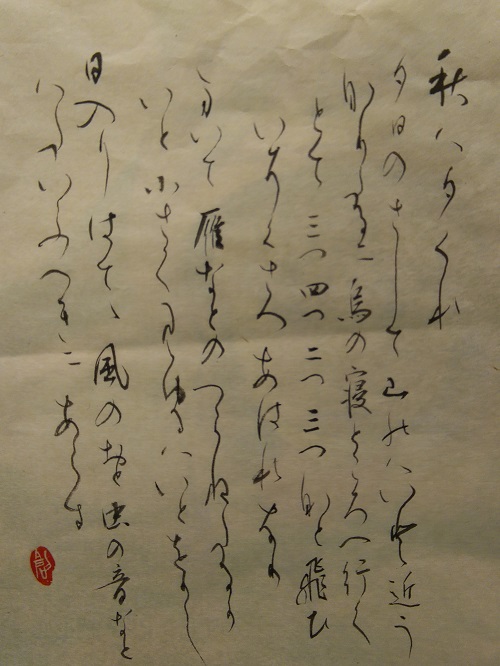 秋ハ夕くれ
夕日のさして山のはいと近う
なりたるニ烏の寝ところへ行く
とて三つ四つ二つ三つなと飛ひ
いそくさへあはれなり
まいて雁なとのつらねたるか
いと小さく見ゆるハいとをかし
日入りはてゝ風のおと虫の音なと
いふへきニあらす